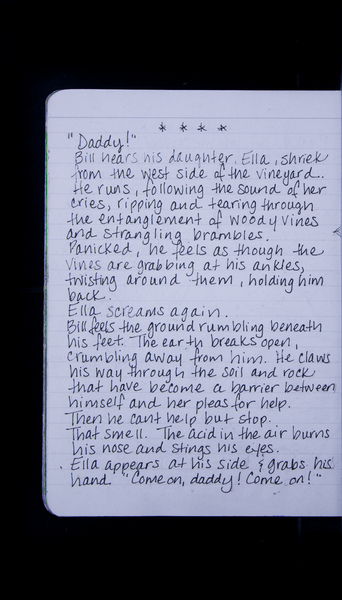 * * * *
"Daddy!"
Bill hears his daughter, Ella, shriek
from the west side of the vineyard.
He runs, following the sound of her
cries, ripping and tearing through
the entanglement of woody vines
and strangling brambles.
Panicked, he feels as though the
vines are grabbing at his ankles,
twisting around them, holding him
back.
Ella screams again.
Bill feels the ground rumbling beneath
his feet. The earth breaks open,
crumbling away from him. He claws
his way through the soil and rock
that have become a barrier between
himself and her pleas for help.
Then he cant help but stop.
That smell. The acid in the air burns
his nose and stings his eyes.
Ella appears at his side & grabs his
hand. "Come on, daddy! Come on!"